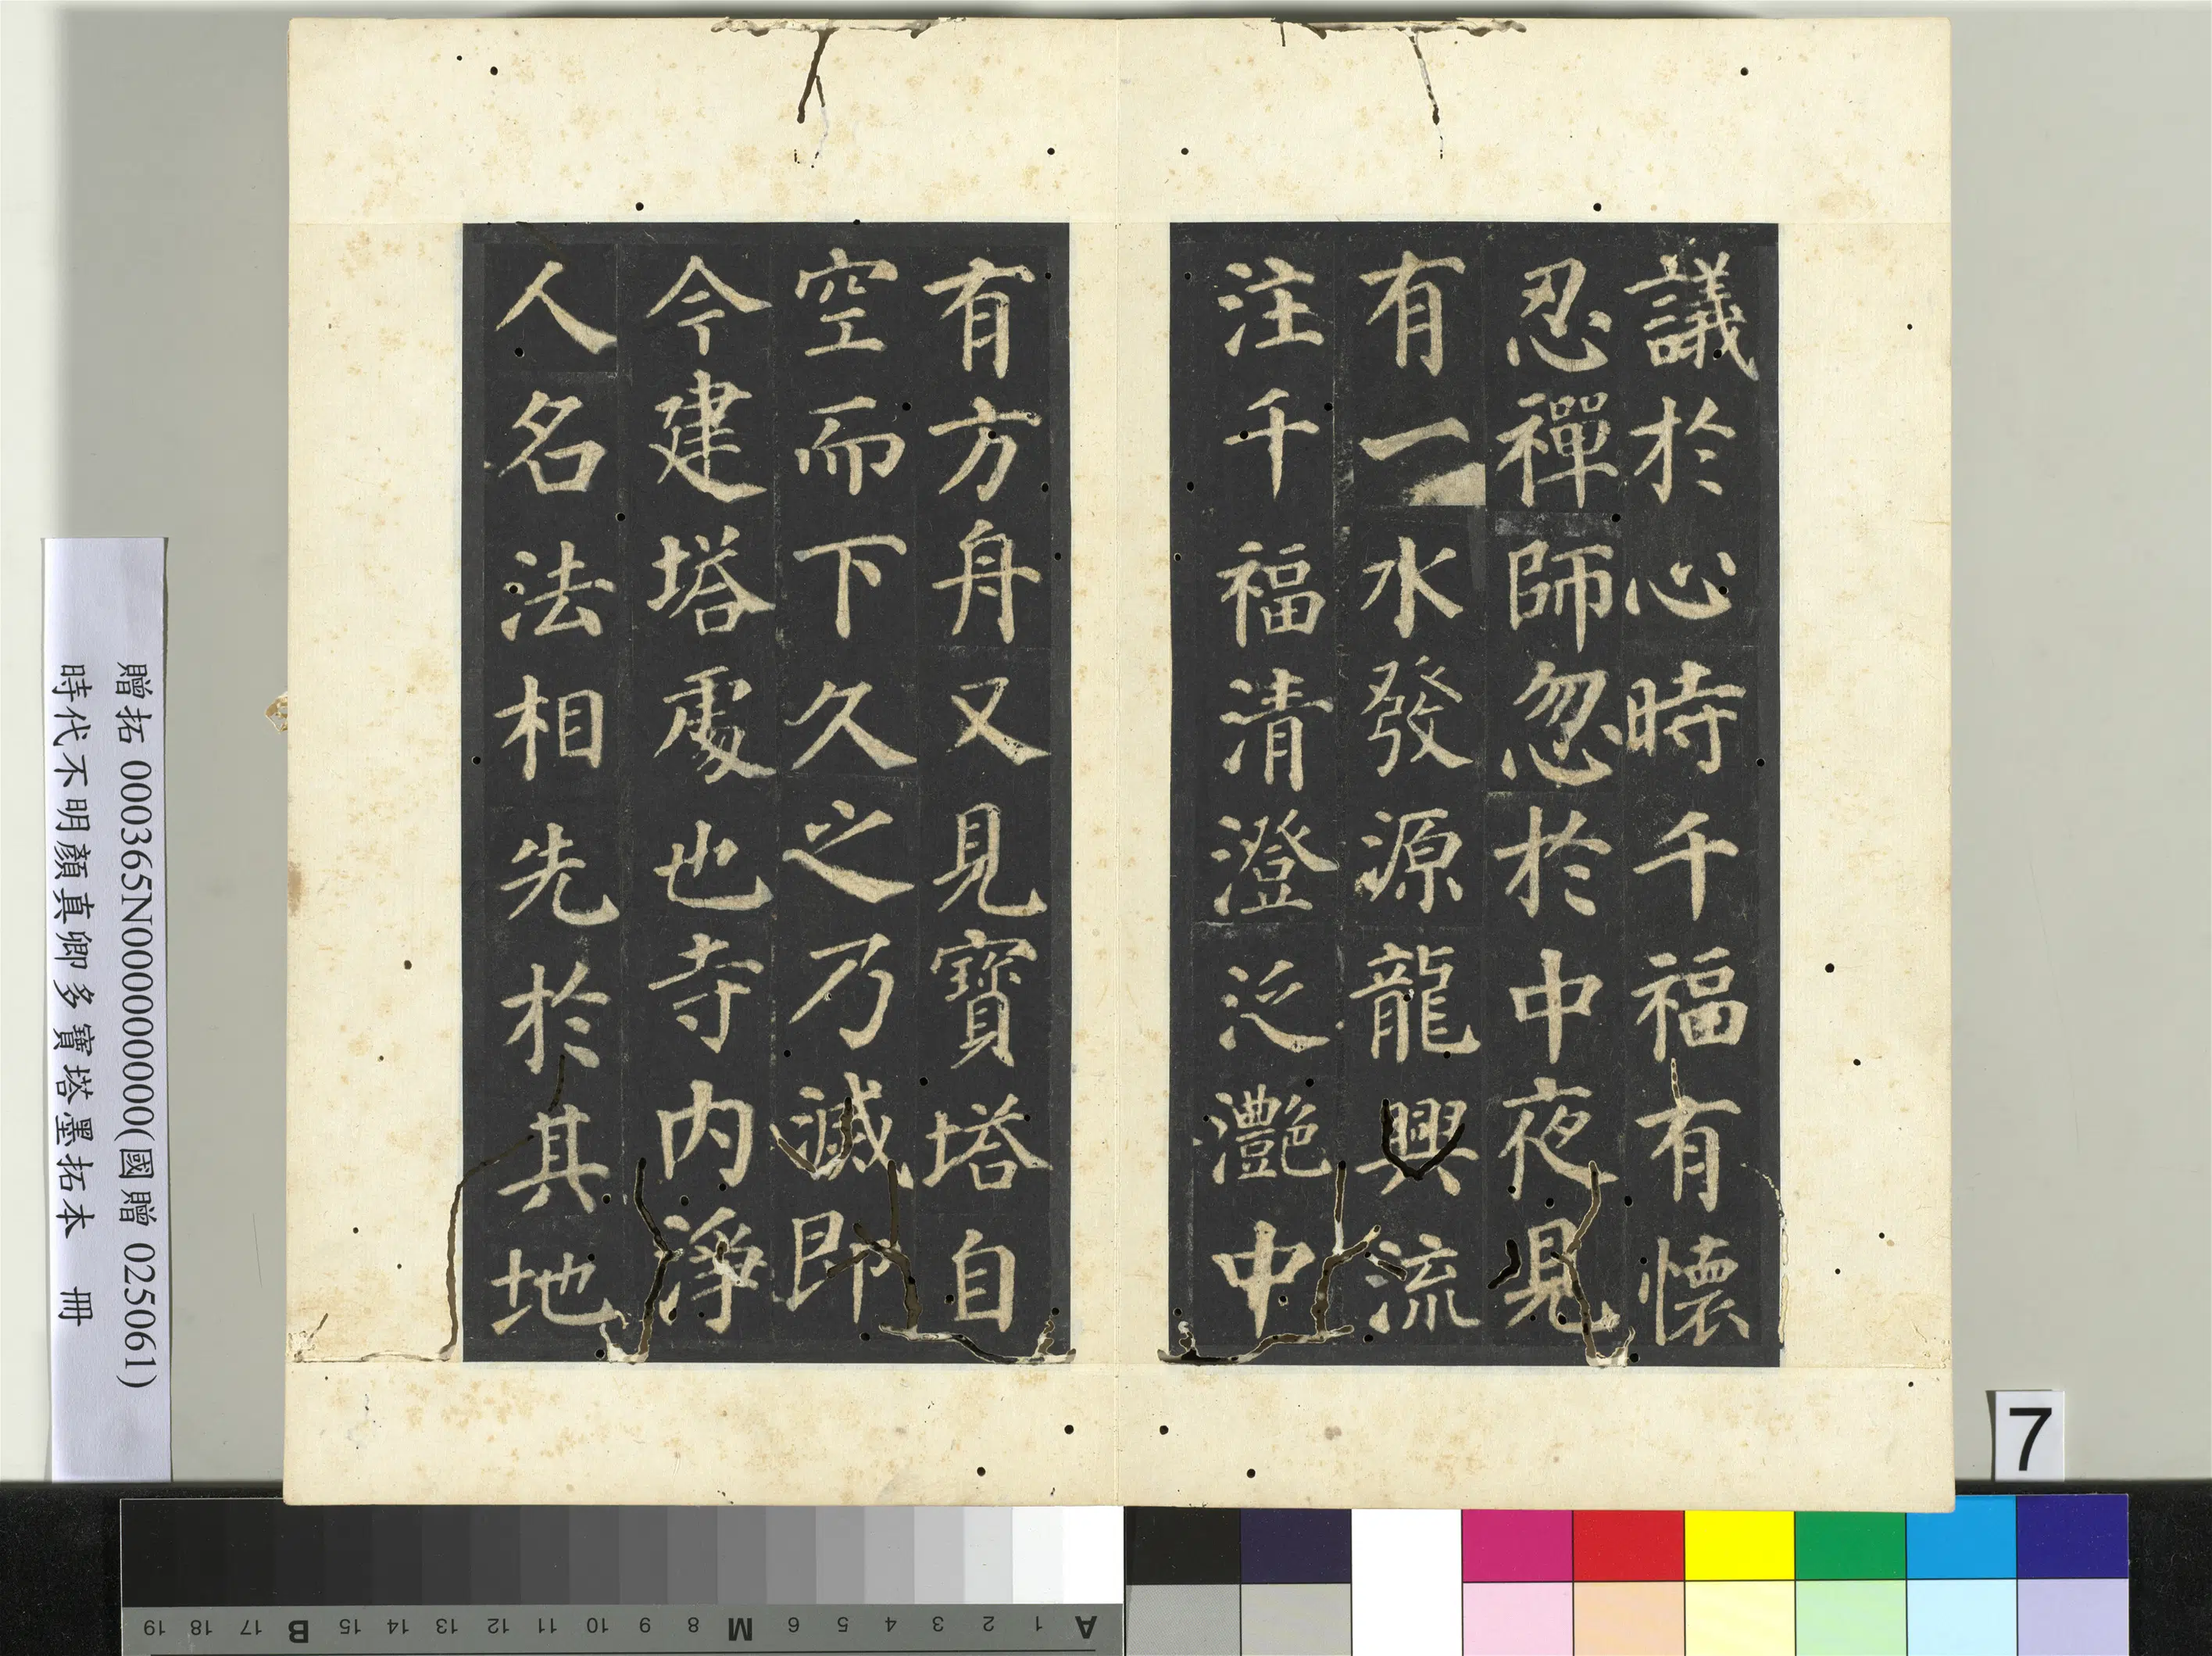 議於心時千福有懷
忍禪師忽於中夜見
有一水發源龍興流
注千福清澄泛灩中
有方舟又見寶塔自
空而下久之乃滅即
今建塔處也寺內淨
人名法相先於其地
贈拓 000365N000000000(國贈 025061)
時代不明顏真卿多寶塔墨拓本 冊
7
A 1 2 3 4 5 6 M 8 9 10 11 12 13 14 15 B 17 18 19